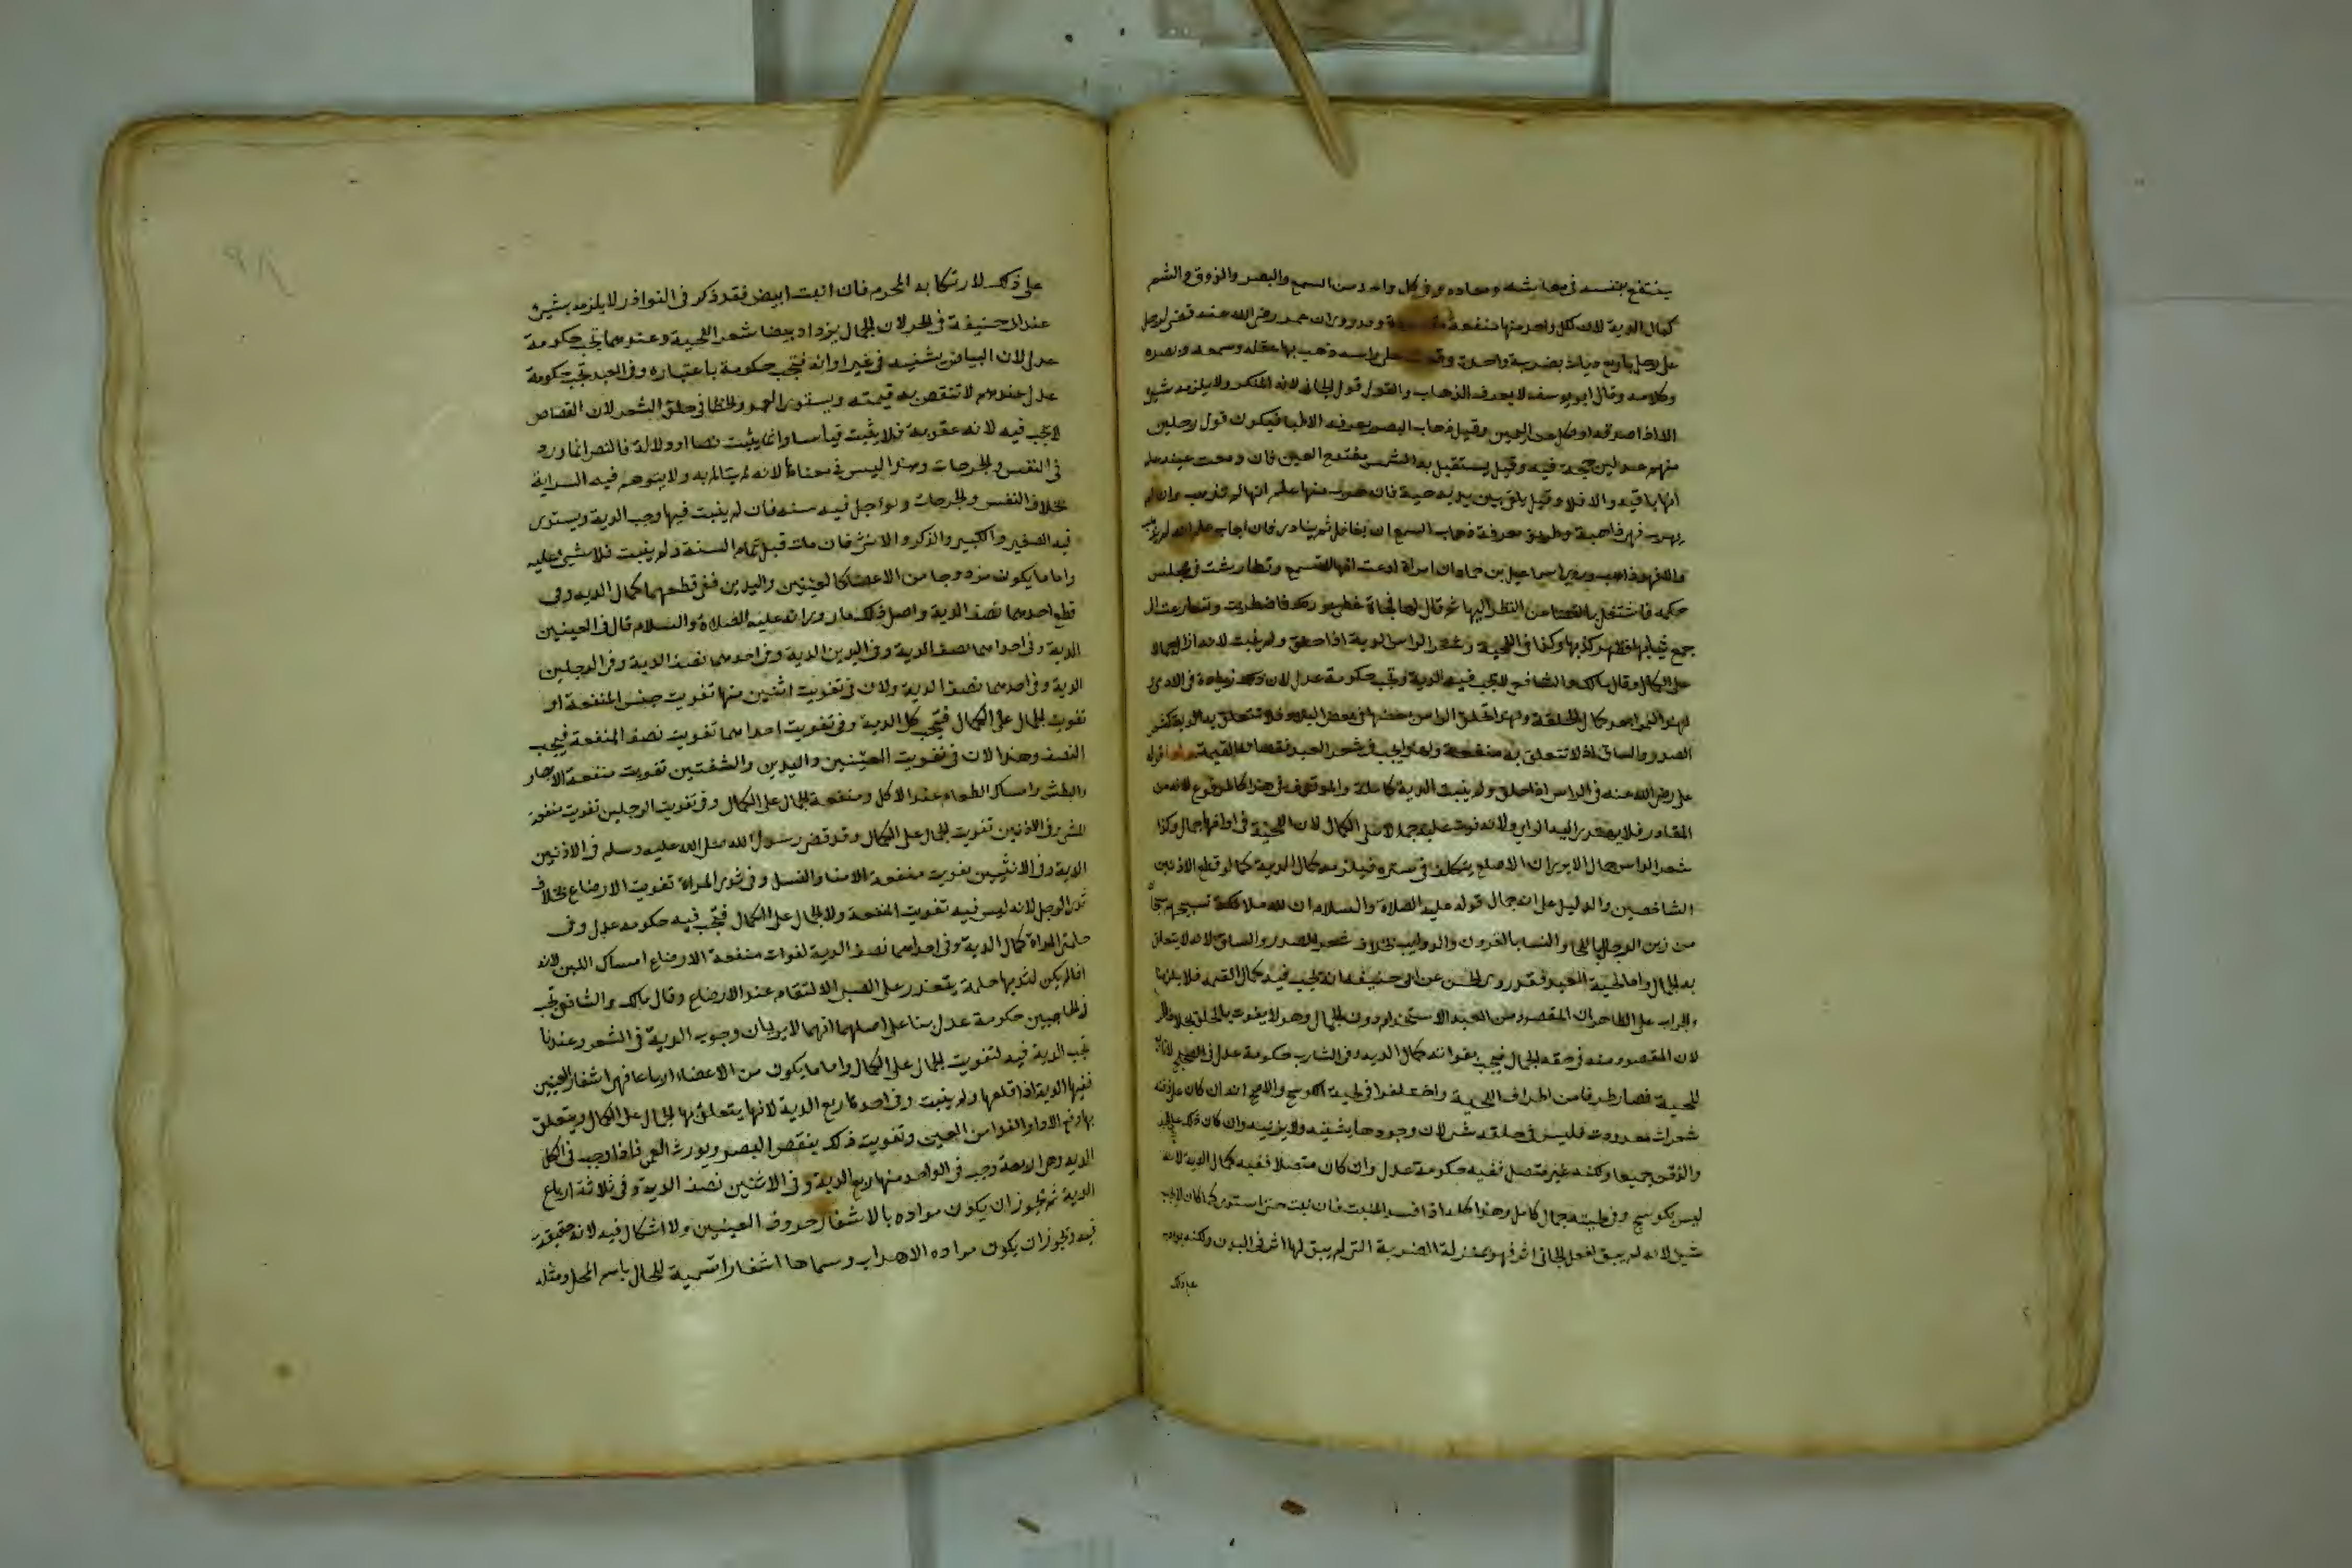 ينتفع بنفسه فى معاشه ومعاده وفى كل واحد من السمع والبصر والذوق والشم
كمال الدية لان لكل واحد منها منفعة مقصودة وقد روى ان عمر رضى الله عنه قضى لرجل
على رجل باربع ديات بضربة واحدة وقعت على راسه ذهب بها عقله وسمعه وبصره
وكلامه وقال ابو يوسف لا يعرف الذهاب والقول قول الجانى لانه المنكر ولا يلزمه شىء
الا اذا صدقه او نكل عن اليمين وقيل ذهاب البصر يعرفه الاطبا فيكون قول رجلين
منهم عدلين حجة فيه وقيل يستقبل به الشمس مفتوح العين فان دمعت عينه علم
انها باقيه والا فلا وقيل يلقى بين يديه حية فان هرب منها علم انها لم تذهب وان لم
يهرب فهى ذاهبة وطريق معرفة ذهاب السمع ان يغافل ثم ينادى فان اجاب علم انه لم يذهب
والا فهو ذاهب وروى اسماعيل بن حماد ان امراة ادعت انها لا تسمع وتطارشت فى مجلس
حكمه فاشتغل بالقضا عن النظر اليها ثم قال لها فجاة غطى عورتك فاضطربت وتسارعت الى
جمع ثيابها فظهر كذبها وكذا فى اللحية وشعر الراس الدية اذا حلق ولم ينبت لانه ازال الجمال
على الكمال وقال مالك والشافعى لا تجب فيه الدية وتجب حكومة عدل لان ذلك زيادة فى الادمى
ولهذا ينمو بعد كمال الخلقة ولهذا تحلق الراس بعضها فى بعض البلاد فلا تتعلق به الدية كشعر
الصدر والساق اذ لا تتعلق به منفعة ولهذا لا يجب فى شعر العبد نقصان القيمة ولنا قول
على رضى الله عنه فى الراس اذا حلق ولم ينبت الدية كاملة والموقوف فى هذا كالمرفوع لانه من
المقادير فلا يهتدى اليه الراى ولانه فوت عليه جمالا على الكمال لان اللحية فى اوانها جمال وكذا
شعر الراس جمال الا يرى ان الاصلع يتكلف فى ستره فيلزمه كمال الدية كما لو قطع الاذنين
الشاخصين والدليل على انه جمال قوله عليه الصلاة والسلام ان لله ملائكة تسبيحهم سبحان
من زين الرجال باللحا والنسا بالقرون والذوايب بخلاف شعر الصدر والساق لانه لا يتعلق
به الجمال واما لحية العبد فقد روى الحسن عن ابى حنيفه انه تجب فيه كمال القيمه فلا يلزمنا
والجواب على الظاهر ان المقصود من العبد الاستخدام دون الجمال وهو لا يفوت بالحلق بخلاف الحر
لان المقصود منه فى حقه الجمال فيجب بفواته كمال الديه وفى الشارب حكومة عدل فى الصحيح لانه تابع
للحية فصار طرفا من اطراف اللحية واختلفوا فى لحية الكوسج والاصح انه ان كان على ذقنه
شعرات معدودت فليس فى حلقه شى لان وجودها يشينه ولا يزينه وان كان ذلك على الخد
والذقن جميعا ولكنه غير متصل ففيه حكومة عدل وان كان متصلا ففيه كمال الدية لانه
ليس بكوسج وفى لحيته جمال كامل وهذا كله اذا افسد المنبت فان نبت حتى استوى كما كان لا يجب
شىء لانه لم يبق لفعل الجانى اثر فهو بمنزلة الضربة التى لم يبق لها اثر فى البدن ولكنه يودب
على ذلك
على ذلك لارتكابه المحرم فان انبت ابيض فقد ذكر فى النوادر لا يلزمه شىء
عند ابى حنيفة فى الحر لان الجمال يزداد ببياض شعر اللحية وعندهما تجب حكومة
عدل لان البياض يشينه فى غير اوانه فتجب حكومة باعتباره وفى العبد تجب حكومة
عدل عندهم لانتقص به قيمته ويستوى العمد والخطا فى حلق الشعر لان القصاص
لا يجب فيه لانه عقوبة فلا يثبت قياسا وانما يثبت نصا او دلالة فالنص انما ورد
فى النفس والجرحات وهذا ليس فى معناها لانه لم يتالم به ولا يتوهم فيه السراية
بخلاف النفس والجرحات ويواجل فيه سنه فان لم ينبت فيها وجب الدية ويستوى
فيه الصغير والكبير والذكر والانثى فان مات قبل تمام السنة ولم ينبت فلا شىء عليه
واما ما يكون مزدوجا من الاعضا كالعينين واليدين ففى قطعهما كمال الديه وفى
قطع احدهما نصف الدية واصل ذلك ما روى انه عليه الصلاة والسلام قال فى العينين
الدية وفى احداهما نصف الدية وفى اليدين الدية وفى احدهما نصف الدية وفى الرجلين
الدية وفى احدهما نصف الدية ولان فى تفويت اثنين منها تفويت جنس المنفعة او
تفويت الجمال على الكمال فيجب كل الدية وفى تفويت احداهما تفويت نصف المنفعة فيجب
النصف وهذا لان فى تفويت العينين واليدين والشفتين تفويت منفعة الابصار
والبطش وامساك الطعام عند الاكل ومنفعة الجمال على الكمال وفى تفويت الرجلين تفويت منفعة
المشى وفى الاذنين تفويت الجمال على الكمال وقد قضى رسول الله صلى الله عليه وسلم فى الاذنين
الدية وفى الانثيين تفويت منفعة الامنا والنسل وفى ثدى المراة تفويت الارضاع بخلاف
ثدى الرجل لانه ليس فيه تفويت المنفعة ولا الجمال على الكمال فتجب فيه حكومه عدل وفى
حلمتى المراة كمال الدية وفى احداهما نصف الدية لفوات منفعة الارضاع امساك اللبن لانه
اذا لم يكن لثديها حلمة يتعذر على الصبى الالتقام عند الارضاع وقال مالك والشافعى تجب
فى الحاجبين حكومة عدل بنا على اصلهما انهما لا يريان وجوب الدية فى الشعر وعندنا
تجب الدية فيه لتفويت الجمال على الكمال واما ما يكون من الاعضاء ارباعا فهى اشفار العينين
ففيها الدية اذا قلعها ولم ينبت وفى احدها ربع الدية لانها يتعلق بها الجمال على الكمال ويتعلق
بها دفع الاذا والقذا من العين وتفويت ذلك ينقص البصر ويورث العمى فاذا وجب فى الكل
الديه وهى اربعة وجب فى الواحد منها ربع الدية وفى الاثنين نصف الدية وفى ثلاثة ارباع
الدية ثم يجوز ان يكون مراده بالاشفار حروف العينين ولا اشكال فيه لانه حقيقة
فيه ويجوز ان يكون مراده الاهداب وسماها اشفارا تسمية للحال باسم المحل ومثله